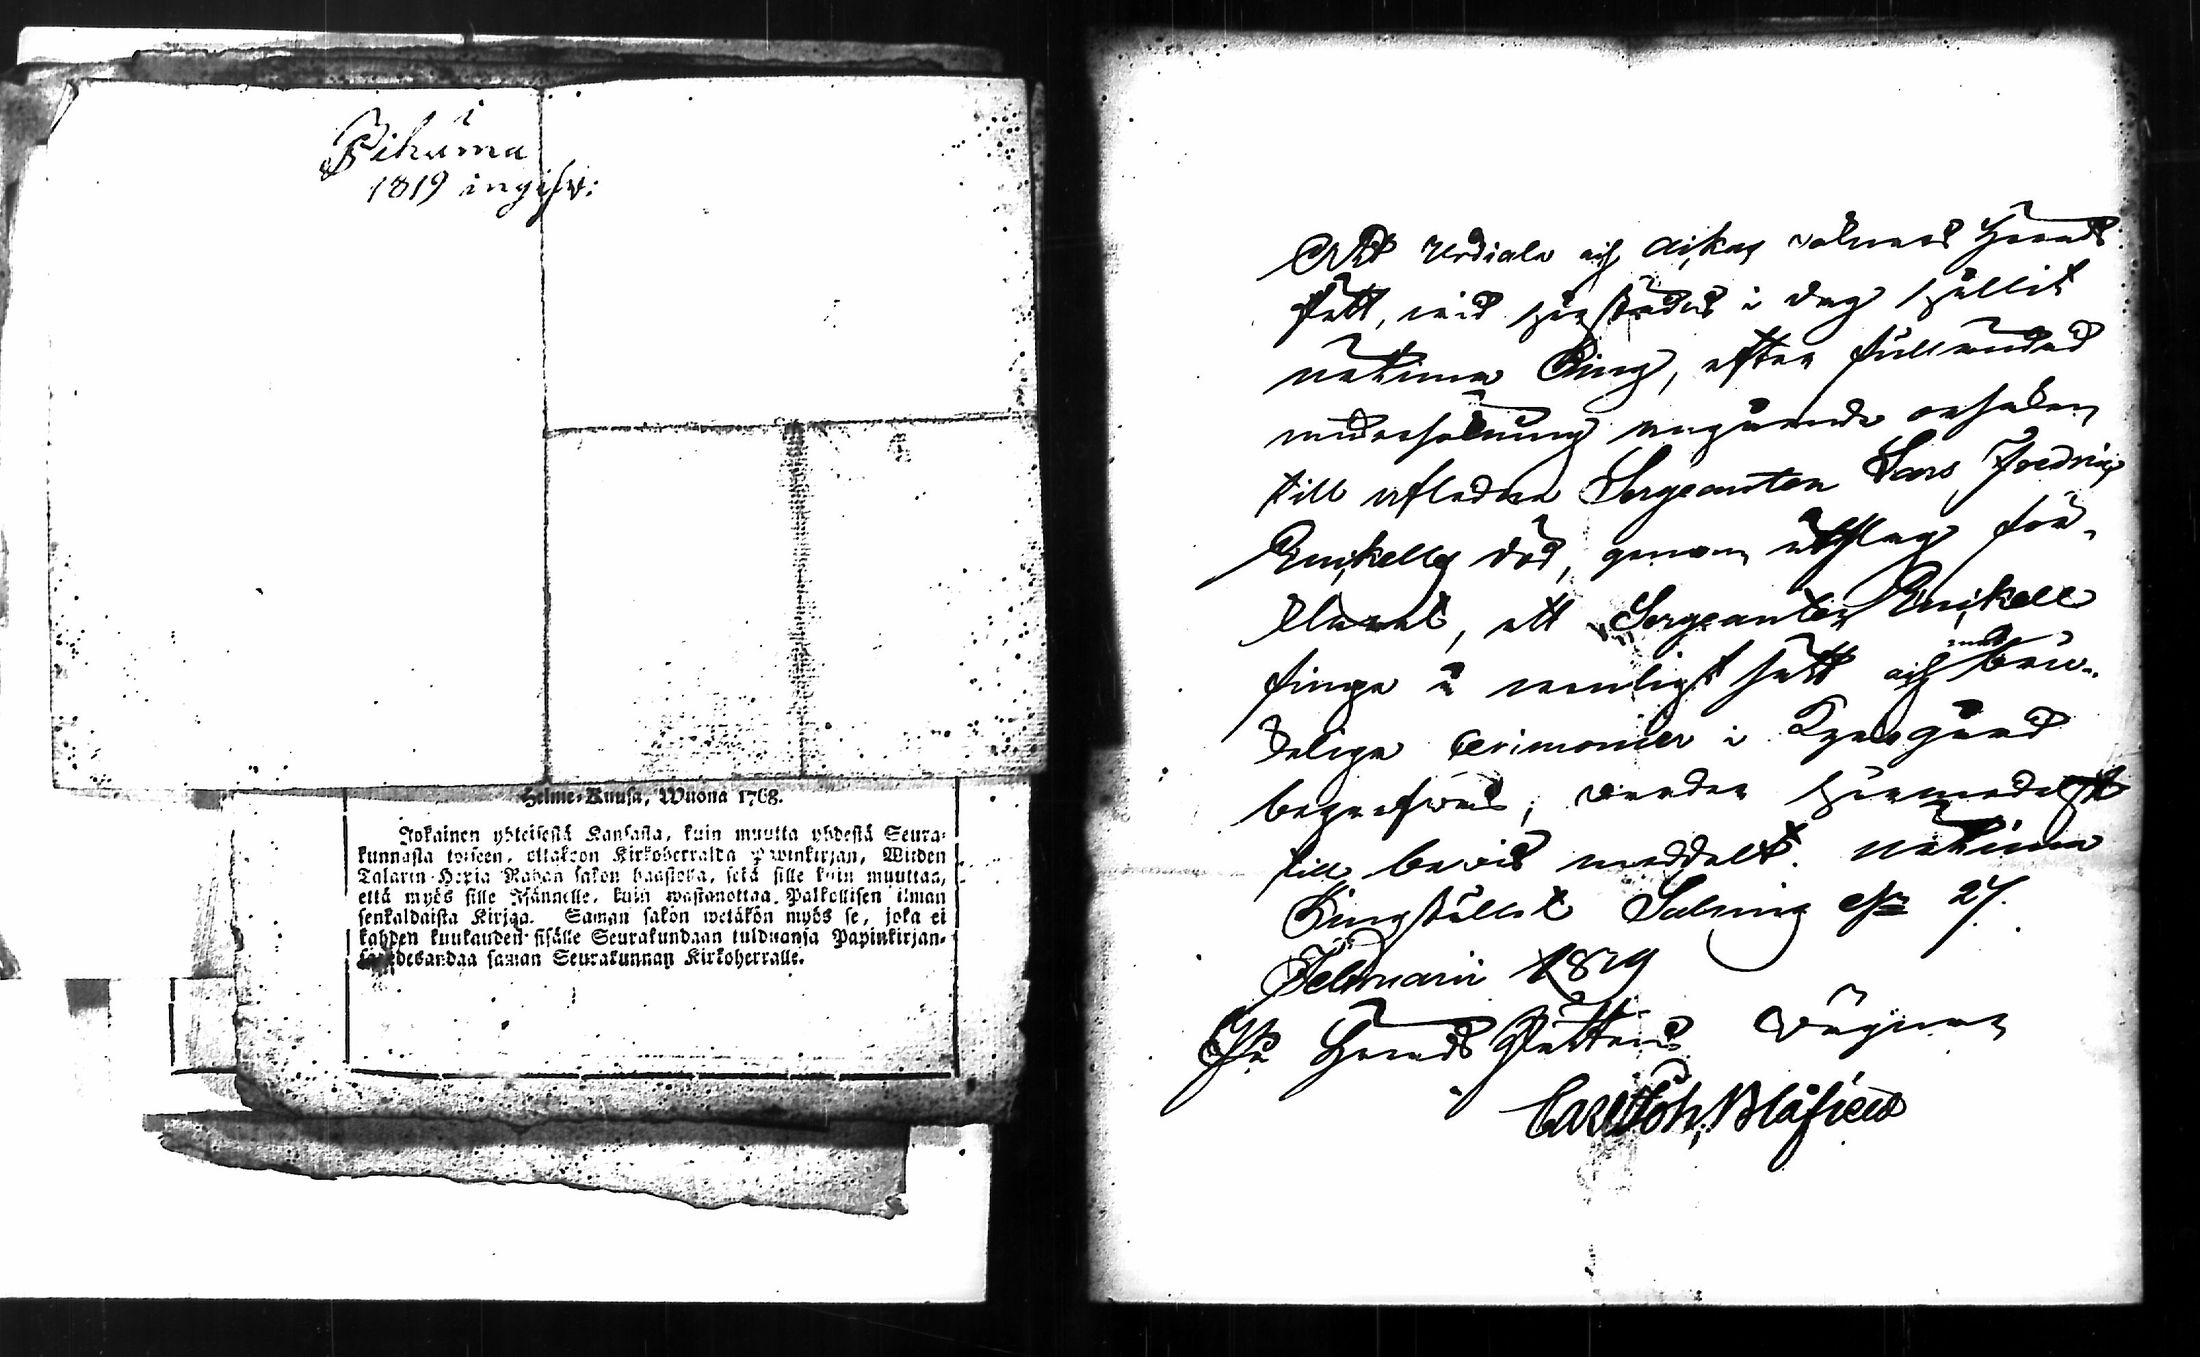 i
Bihuma
1819 ingifv:
Helme-Kuusa, Wuona 1768.
Jokainen yhteisestä Kansasta, kuin muutta yhdestä Seura-
kunnasta toiseen, ottakoon Kirkoherralda Papinkirjan, Wiiden
Talarin Hopia Rahan sakon haastolla, sekä sille kuin muuttaa,
että myös sille Isännelle, kuin wastanottaa Palkollisen ilman
senkaldaista Kirjaa. Saman sakon wetäkön myös se, joka ei
kahden kuukauden sisälle Seurakundaan tulduansa Papinkirjan-
edesandaa saman Seurakunnan Kirkoherralle.
Att Urdiala och Akkas socknars Härads
Rätt, vid härstädes i dag hållit
Urtima Ting, efter fulländad
undersökning angående orsaken
till afledne Sergeanten Lars Fredric
Enckells död, genom utslag för-
klarat, att Sergeanten Enckell
finge å vanligt sätt och under bru-
kelige cerimonier i Kyrkogård
begrafvas, varder härmedelst
till bevis meddelt. Urtima
Tingstället Salmis den 27.
Februarii 1819
På Härads Rättens Vägnar
Carl Joh. Blåfield